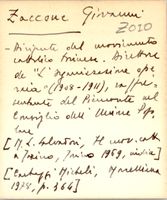 Zaccone Giovanni
Z010
- Dirigente del movimento
cattolico torinese. Direttore
de "L'Organizzazione ope
raia" (1908-1911), rappre
sentante del Piemonte al
Consiglio dell'Unione Popo
lare
[M. L. Salvadori, Il mov. catt.
a Torino, Torino 1969,
Micheli,
1974, p. 164]